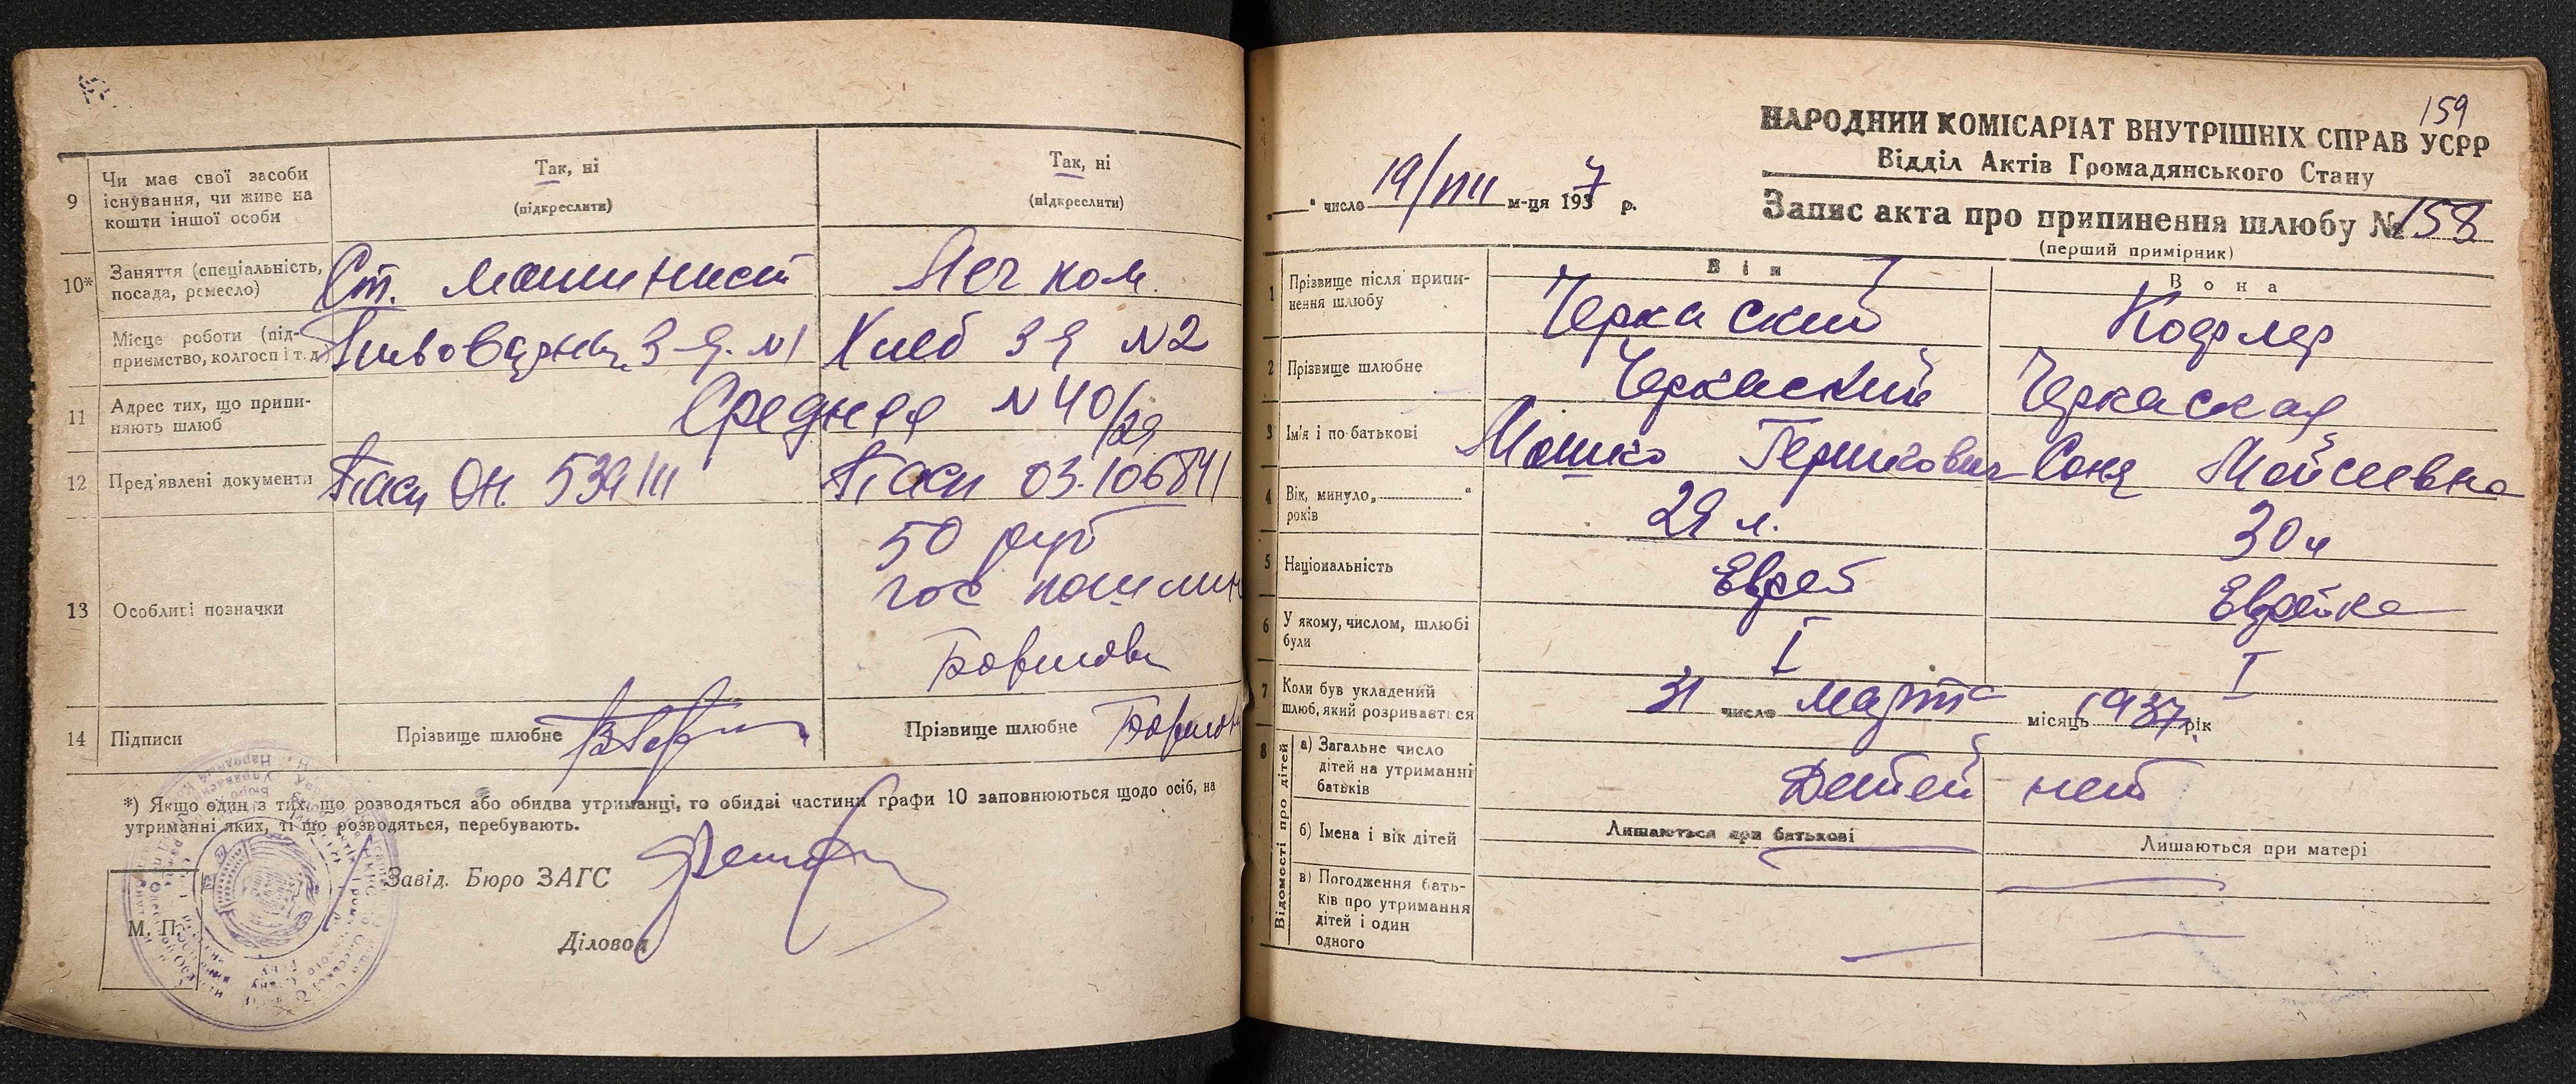 9
Чи має свої засоби
існування, чи живе на
кошти іншої особи
Так, ні
(підкреслити)
Так, ні
(підкреслити)
10*
Заняття (спеціальність,
посада, ремесло)
Ст. машинист
Местком.
Місце роботи (під-
приємство, колгосп і т. д.
Пивоварн. з-д. №1
Хлеб з д №2
11
Адрес тих, що припи-
няють шлюб
Средняя №40/29
12
Пред'явлені документи
Пасп ОН. 539111
Пасп 03.106841
13
Особливі позначки
50 руб
гос пошлин
14
Підписи
Прізвище шлюбне
Прізвище шлюбне
*) Якщо один з тих, що розводяться або обидва утриманці, то обидві частини графи 10 заповнюються щодо осіб, на
утриманні яких, ті що розводяться, перебувають.
Завід. Бюро ЗАГС
М. П.
Діловод
159
НАРОДНИЙ КОМІСАРІАТ ВНУТРІШНІХ СПРАВ УСРР
Відділ Актів Громадянського Стану
" число 19/VIII м-ця 1937 р.
Запис акта про припинення шлюбу № 158
(перший примірник)
Він
Вона
1
Прізвище після припи-
нення шлюбу
Черкаский
2
Прізвище шлюбне
Черкаский
Черкаская
3
Ім'я і по-батькові
Мошко Гершкович
Соня Мойсеевна
4
Вік, минуло „ “
років
29 л.
30 л
5
Національність
Еврей
Еврейка
6
У якому, числом, шлюбі
були
I
I
7
Коли був укладений
шлюб, який розривається
31 число марта місяць 1937 рік
8
Відомості про дітей
а) Загальне число
дітей на утриманні
батьків
Детей нет
б) Імена і вік дітей
Лишаються при батькові
Лишаються при матері
в) Погодження бать-
ків про утримання
дітей і один
одного